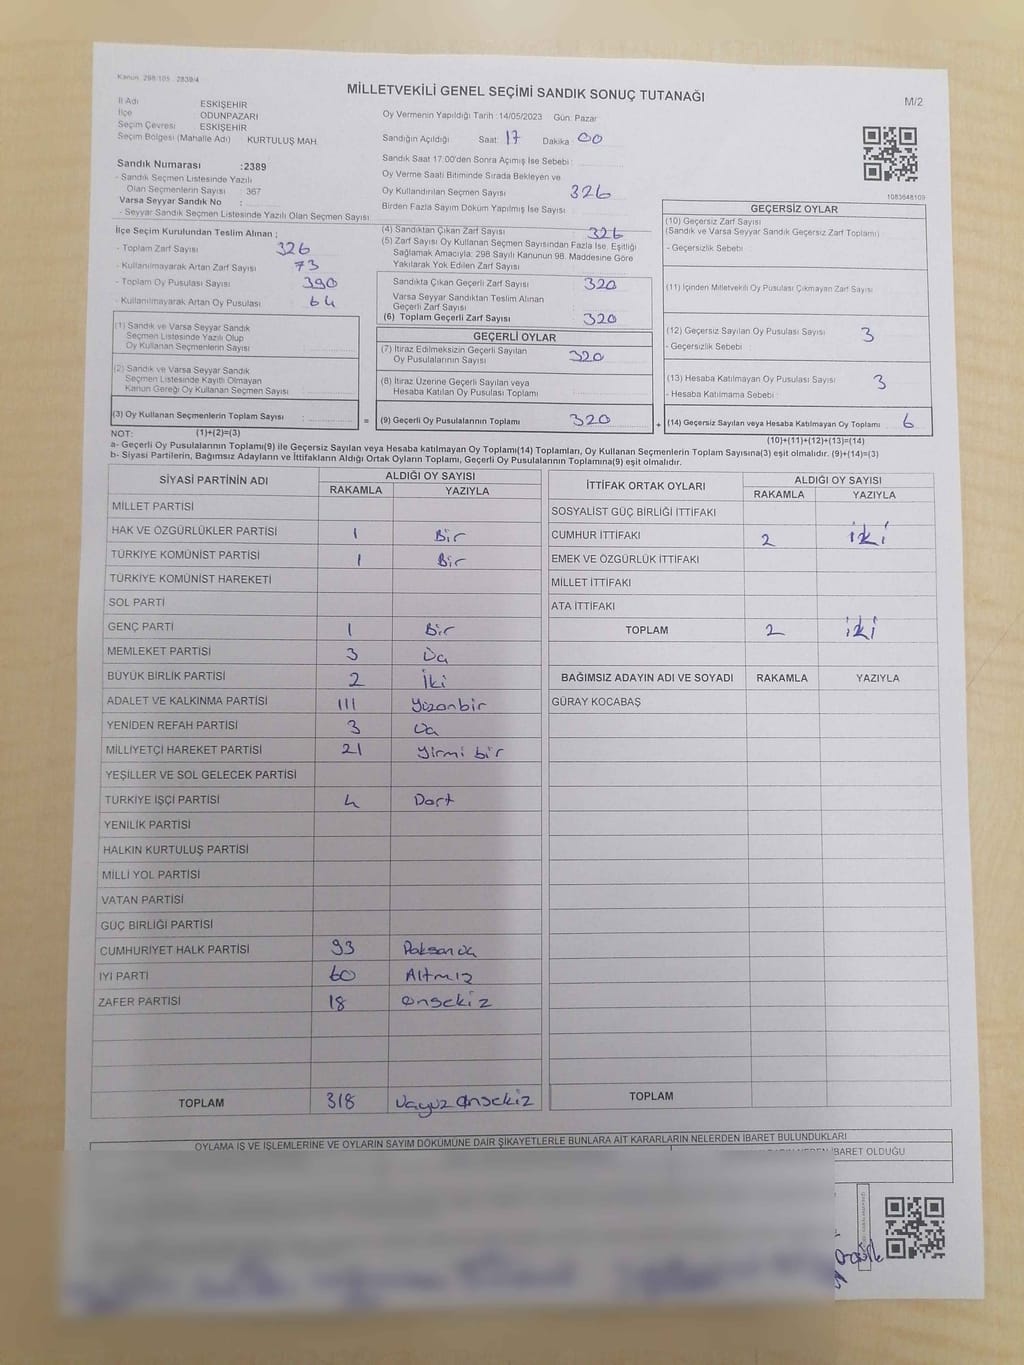 Kanun 298/105 2839/4
MİLLETVEKİLİ GENEL SEÇİMİ SANDIK SONUÇ TUTANAĞI
M/2
İl Adı ESKİŞEHİR
İlçe ODUNPAZARI
Seçim Çevresi ESKİŞEHİR
Seçim Bölgesi (Mahalle Adı) KURTULUŞ MAH.
Oy Vermenin Yapıldığı Tarih : 14/05/2023 Gün: Pazar
Sandığın Açıldığı Saat: 17 Dakika 00
Sandık Saat 17:00'den Sonra Açımış İse Sebebi :
Oy Verme Saati Bitiminde Sırada Bekleyen ve
Oy Kullandırılan Seçmen Sayısı 326
Birden Fazla Sayım Döküm Yapılmış İse Sayısı :
Sandık Numarası :2389
- Sandık Seçmen Listesinde Yazılı
Olan Seçmenlerin Sayısı : 367
Varsa Seyyar Sandık No :
- Seyyar Sandık Seçmen Listesinde Yazılı Olan Seçmen Sayısı
1083648109
İlçe Seçim Kurulundan Teslim Alınan ;
- Toplam Zarf Sayısı 326
- Kullanılmayarak Artan Zarf Sayısı 73
- Toplam Oy Pusulası Sayısı 390
- Kullanılmayarak Artan Oy Pusulası 64
(1) Sandık ve Varsa Seyyar Sandık
Seçmen Listesinde Yazılı Olup
Oy Kullanan Seçmenlerin Sayısı
(2) Sandık ve Varsa Seyyar Sandık
Seçmen Listesinde Kayıtlı Olmayan
Kanun Gereği Oy Kullanan Seçmen Sayısı
(3) Oy Kullanan Seçmenlerin Toplam Sayısı :
=
(4) Sandıktan Çıkan Zarf Sayısı 326
(5) Zarf Sayısı Oy Kullanan Seçmen Sayısından Fazla İse, Eşitliği
Sağlamak Amacıyla; 298 Sayılı Kanunun 98. Maddesine Göre
Yakılarak Yok Edilen Zarf Sayısı
Sandıkta Çıkan Geçerli Zarf Sayısı 320
Varsa Seyyar Sandıktan Teslim Alınan
Geçerli Zarf Sayısı
(6) Toplam Geçerli Zarf Sayısı 320
GEÇERLİ OYLAR
(7) İtiraz Edilmeksizin Geçerli Sayılan
Oy Pusulalarının Sayısı 320
(8) İtiraz Üzerine Geçerli Sayılan veya
Hesaba Katılan Oy Pusulası Toplamı
(9) Geçerli Oy Pusulalarının Toplamı 320
+
GEÇERSİZ OYLAR
(10) Geçersiz Zarf Sayısı
(Sandık ve Varsa Seyyar Sandık Geçersiz Zarf Toplamı)
- Geçersizlik Sebebi
(11) İçinden Milletvekili Oy Pusulası Çıkmayan Zarf Sayısı
(12) Geçersiz Sayılan Oy Pusulası Sayısı 3
- Geçersizlik Sebebi
(13) Hesaba Katılmayan Oy Pusulası Sayısı 3
- Hesaba Katılmama Sebebi
(14) Geçersiz Sayılan veya Hesaba Katılmayan Oy Toplamı 6
NOT: (1)+(2)=(3)
(10)+(11)+(12)+(13)=(14)
a- Geçerli Oy Pusulalarının Toplamı(9) ile Geçersiz Sayılan veya Hesaba katılmayan Oy Toplamı(14) Toplamları, Oy Kullanan Seçmenlerin Toplam Sayısına(3) eşit olmalıdır. (9)+(14)=(3)
b- Siyasi Partilerin, Bağımsız Adayların ve İttifakların Aldığı Ortak Oyların Toplamı, Geçerli Oy Pusulalarının Toplamına(9) eşit olmalıdır.
SİYASİ PARTİNİN ADI ALDIĞI OY SAYISI
RAKAMLA YAZIYLA
MİLLET PARTİSİ
HAK VE ÖZGÜRLÜKLER PARTİSİ 1 Bir
TÜRKİYE KOMÜNİST PARTİSİ 1 Bir
TÜRKİYE KOMÜNİST HAREKETİ
SOL PARTİ
GENÇ PARTİ 1 Bir
MEMLEKET PARTİSİ 3 Üç
BÜYÜK BİRLİK PARTİSİ 2 İki
ADALET VE KALKINMA PARTİSİ 111 Yüzonbir
YENİDEN REFAH PARTİSİ 3 Üç
MİLLİYETÇİ HAREKET PARTİSİ 21 Yirmi bir
YEŞİLLER VE SOL GELECEK PARTİSİ
TÜRKİYE İŞÇİ PARTİSİ 4 Dört
YENİLİK PARTİSİ
HALKIN KURTULUŞ PARTİSİ
MİLLİ YOL PARTİSİ
VATAN PARTİSİ
GÜÇ BİRLİĞİ PARTİSİ
CUMHURİYET HALK PARTİSİ 93 Doksanüç
İYİ PARTİ 60 Altmış
ZAFER PARTİSİ 18 Onsekiz
TOPLAM 318 Üçyüz Onsekiz
İTTİFAK ORTAK OYLARI ALDIĞI OY SAYISI
RAKAMLA YAZIYLA
SOSYALİST GÜÇ BİRLİĞİ İTTİFAKI
CUMHUR İTTİFAKI 2 iki
EMEK VE ÖZGÜRLÜK İTTİFAKI
MİLLET İTTİFAKI
ATA İTTİFAKI
TOPLAM 2 iki
BAĞIMSIZ ADAYIN ADI VE SOYADI RAKAMLA YAZIYLA
GÜRAY KOCABAŞ
TOPLAM
OYLAMA İŞ VE İŞLEMLERİNE VE OYLARIN SAYIM DÖKÜMÜNE DAİR ŞİKAYETLERLE BUNLARA AİT KARARLARIN NELERDEN İBARET BULUNDUKLARI
İBARET OLDUĞU